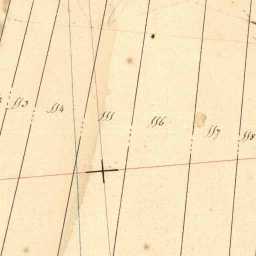 553
554
555
556
557
558